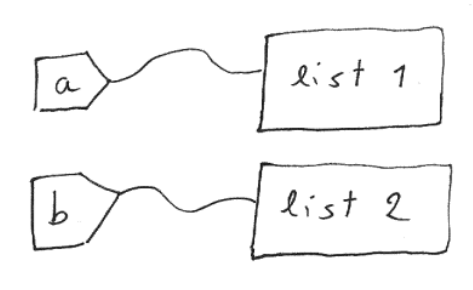 a list 1
b list 2